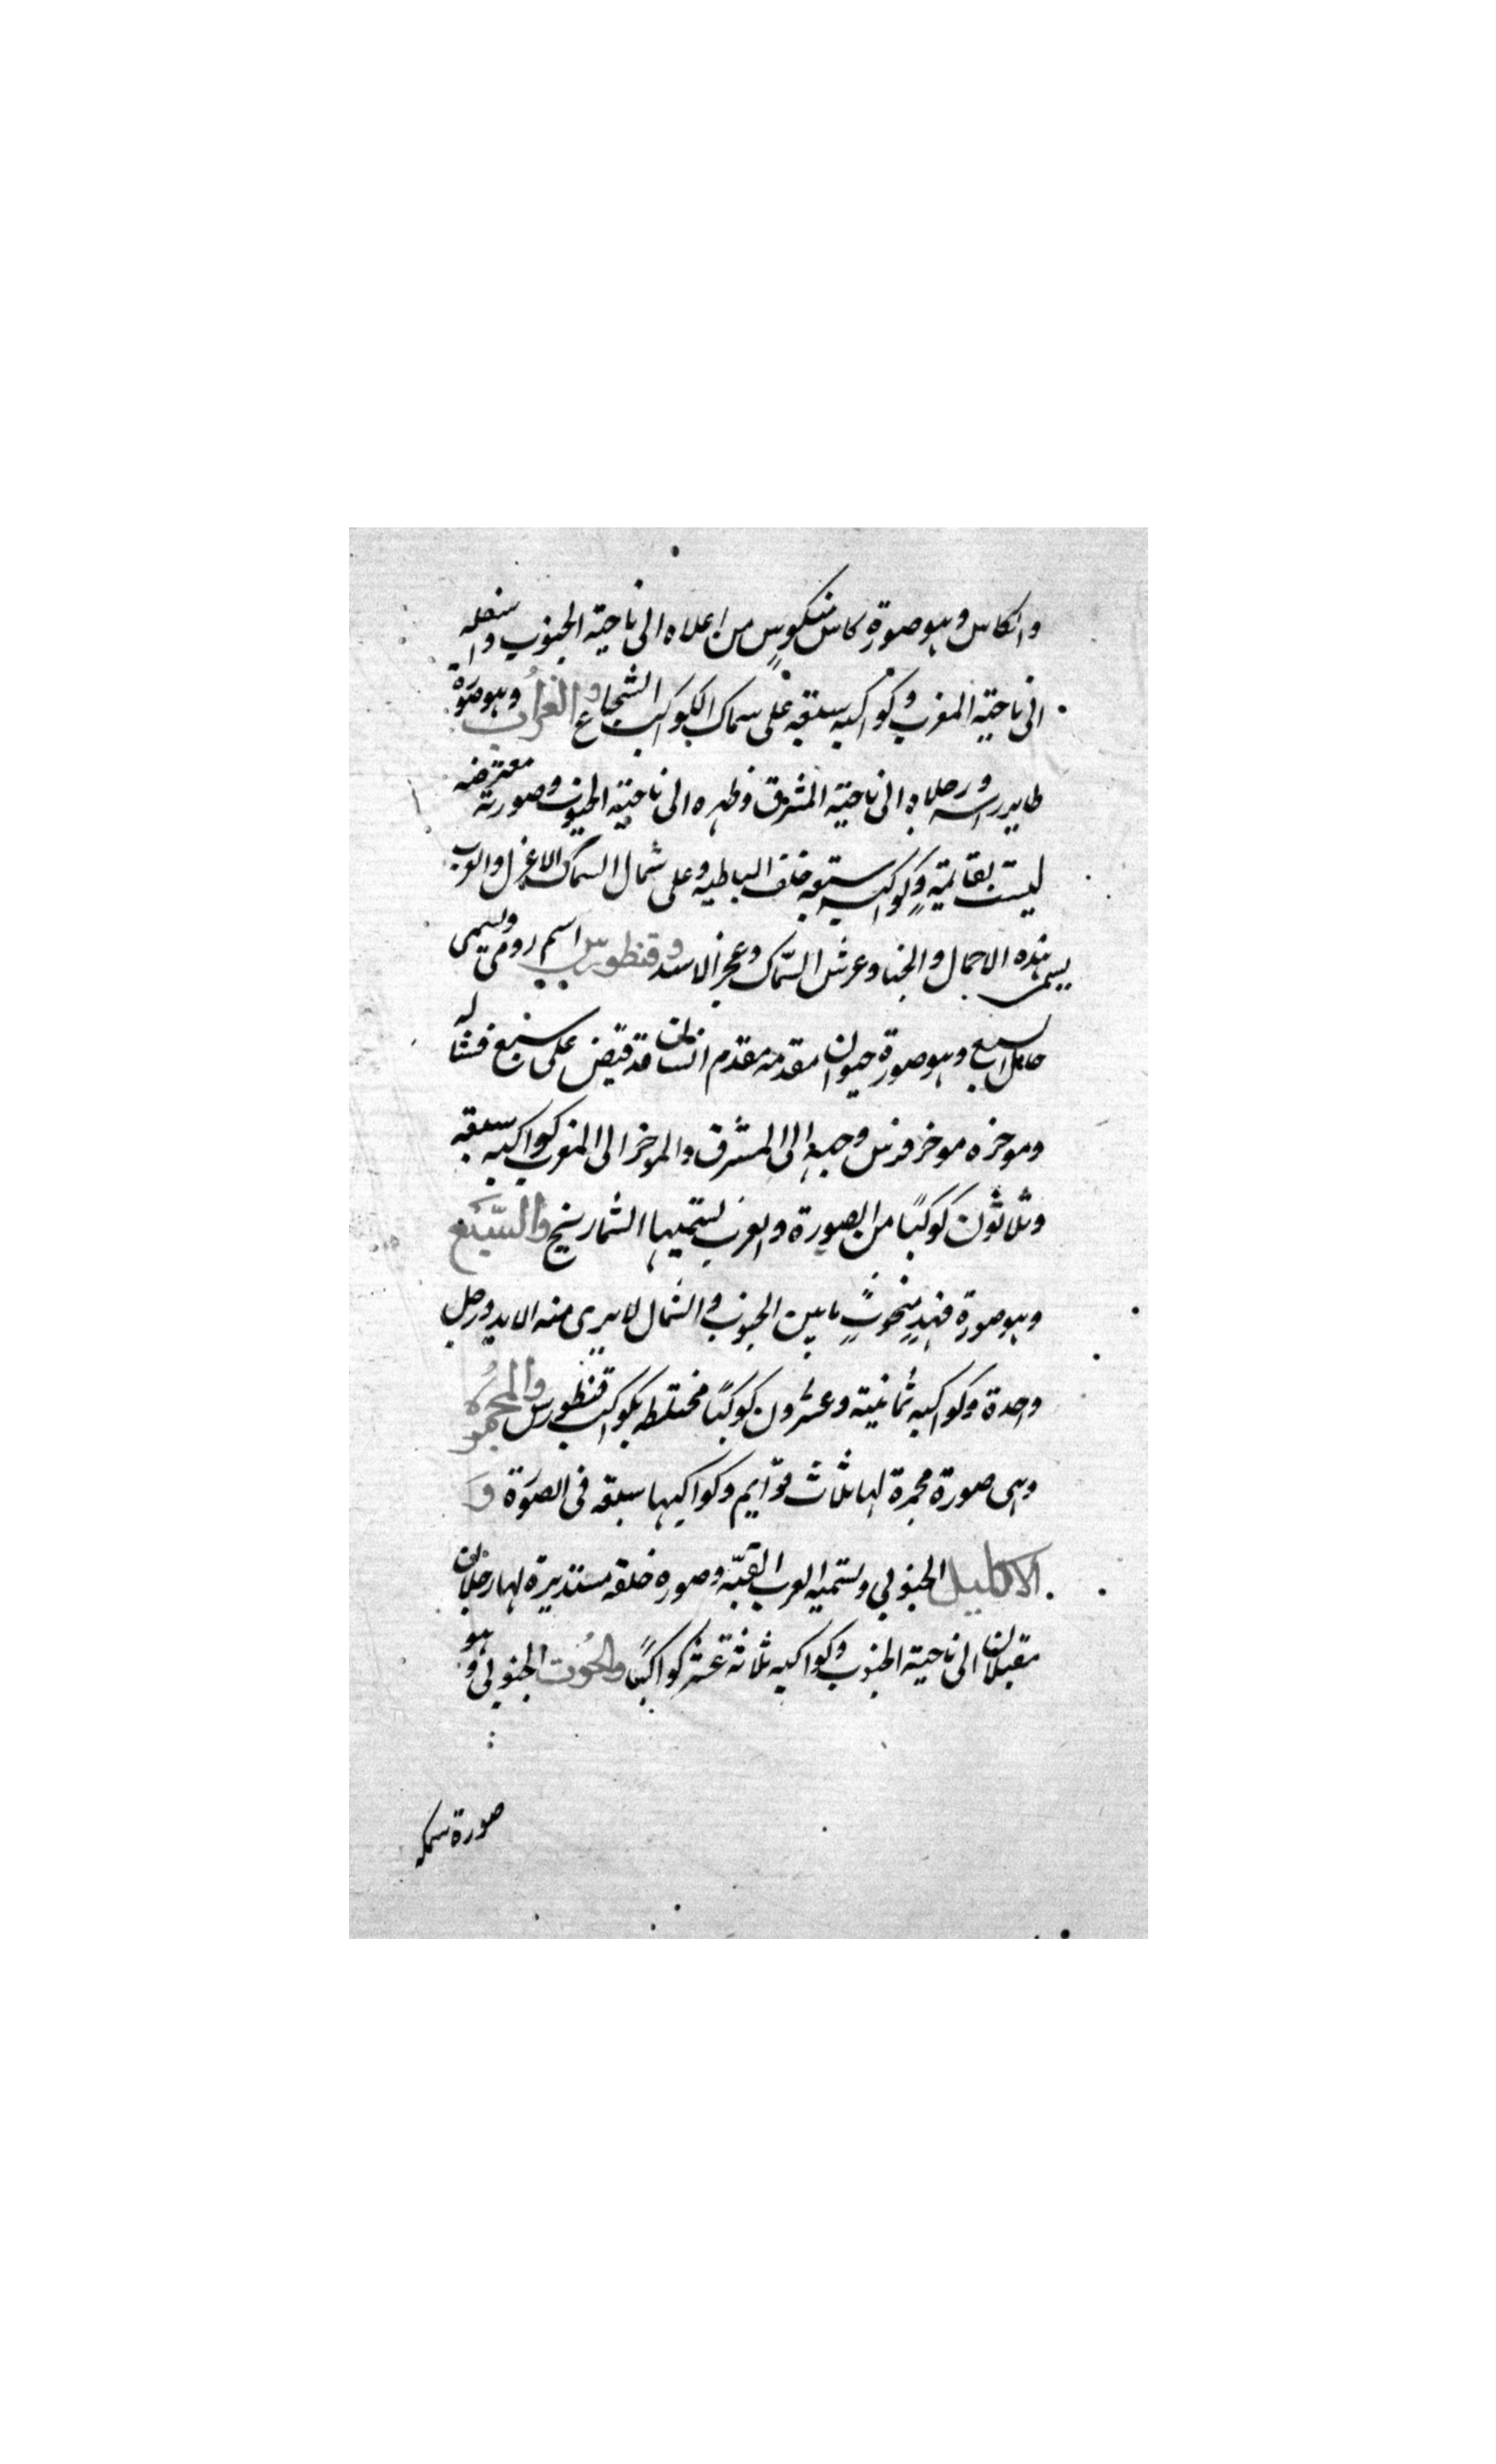 والكاس وهو صورة كاس منكوس من اعلاه الى ناحية الجنوب واسفله
الى ناحية المغرب وكواكبه سبعة على سماك الكواكب الشجاع والغراب وهو صورة
طاير راسه ورجلاه الى ناحية المشرق وظهره الى ناحية الجنوب وصورته معترضه
ليست بقائمة وكواكبه سبعة خلف الباطيه وعلى شمال السماك الاعزل والعرب
يسمى هذه الاحمال والخبا وعرش السماك وعجز الاسد وقنطورس اسم رومى ويسمى
حامل السبع وهو صورة حيوان مقدمه مقدم انسان قد قبض على سبع فشاله
وموخره موخر فرس وجهه الى المشرق والموخر الى المغرب كواكبه سبعة
وثلاثون كوكبًا من الصورة والعرب تسميها الشماريخ والسبع
وهو صورة فهد منخوث ما بين الجنوب والشمال لا يرى منه الا يد ورجل
واحدة وكواكبه ثمانية وعشرون كوكبًا مختلطه بكواكب قنطورس والمجمره
وهى صورة مجمرة لها ثلاث قوايم وكواكبها سبعة فى الصورة و
الاكليل الجنوبي وتسميه العرب القبّه وصوره خلقه مستديرة لها رجلان
مقبلان الى ناحية الجنوب وكواكبه ثلاثة عشر كواكبًا والحوت الجنوبي وهو
صورة سمكه